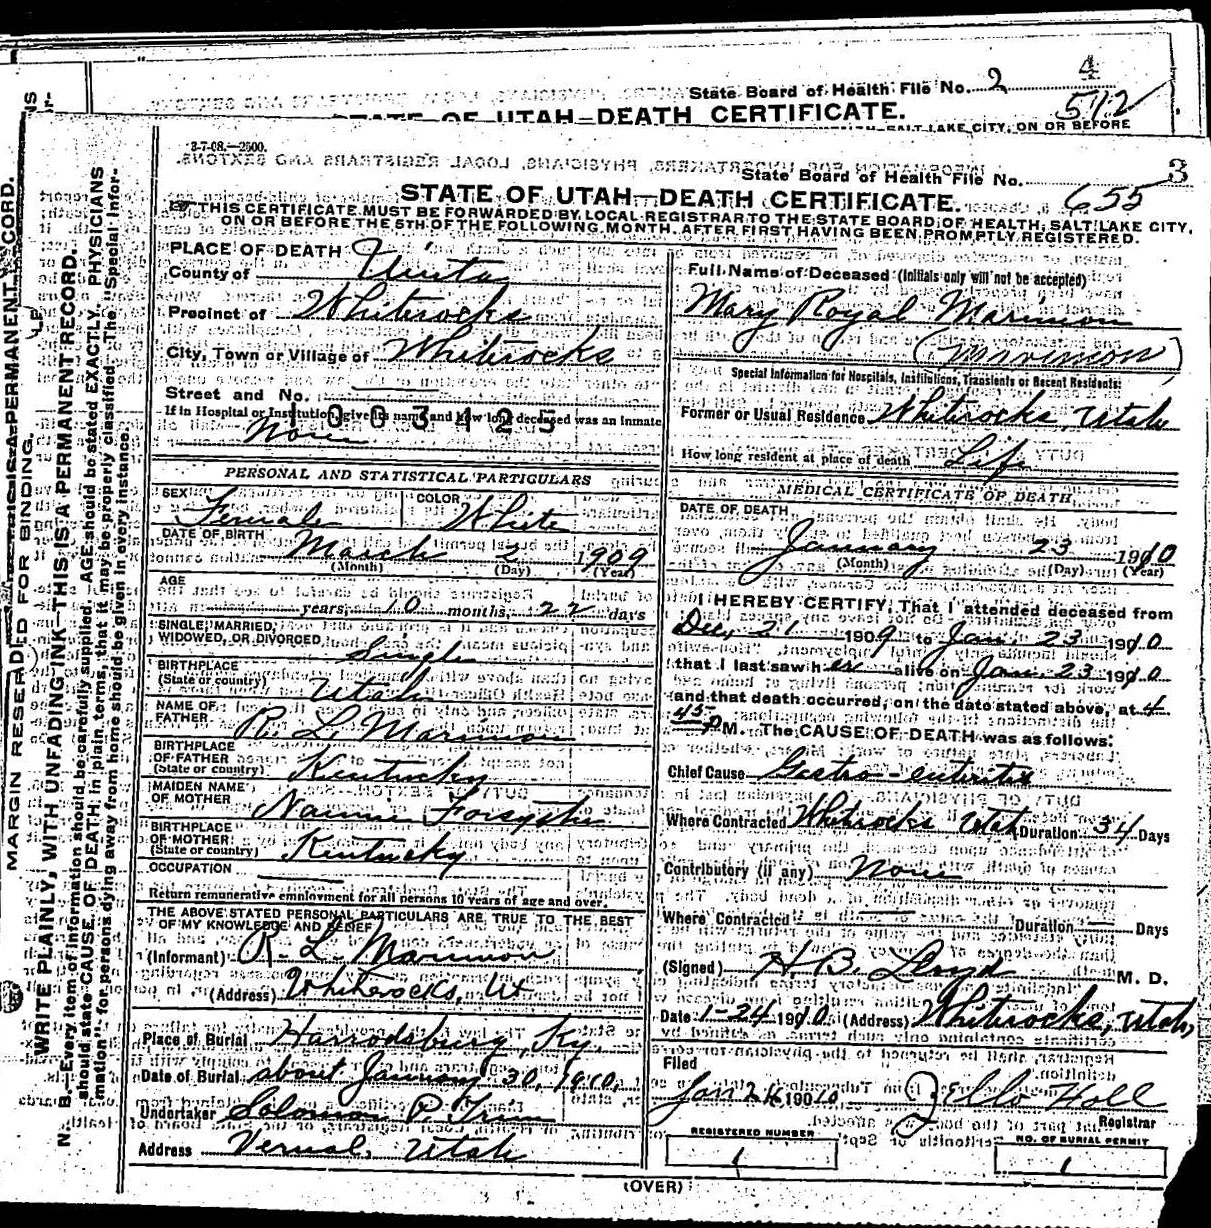 State Board of Health File No. 2 4
572
STATE OF UTAH—DEATH CERTIFICATE.
SALT LAKE CITY, ON OR BEFORE
3-7-08.—2500.
State Board of Health File No. 3
655
STATE OF UTAH—DEATH CERTIFICATE.
THIS CERTIFICATE MUST BE FORWARDED BY LOCAL REGISTRAR TO THE STATE BOARD OF HEALTH, SALT LAKE CITY,
ON OR BEFORE THE 5TH OF THE FOLLOWING MONTH, AFTER FIRST HAVING BEEN PROMPTLY REGISTERED.
MARGIN RESERVED FOR BINDING.
WRITE PLAINLY, WITH UNFADING INK—THIS IS A PERMANENT RECORD.
N. B.—Every item of information should be carefully supplied. AGE should be stated EXACTLY. PHYSICIANS
should state CAUSE OF DEATH in plain terms, that it may be properly classified. The "Special Infor-
mation" for persons dying away from home should be given in every instance.
PLACE OF DEATH
County of Uinta
Precinct of Whiterocks
City, Town or Village of Whiterocks
Street and No.
If in Hospital or Institution, give its name and how long deceased was an inmate
1003125
None
PERSONAL AND STATISTICAL PARTICULARS
SEX Female COLOR White
DATE OF BIRTH March 2 1909
(Month) (Day) (Year)
AGE
years, 10 months, 22 days
SINGLE, MARRIED,
WIDOWED, OR DIVORCED Single
BIRTHPLACE
(State or country) Utah
NAME OF
FATHER R. L. Marimon
BIRTHPLACE
OF FATHER
(State or country) Kentucky
MAIDEN NAME
OF MOTHER Nannie Forsythe
BIRTHPLACE
OF MOTHER
(State or country) Kentucky
OCCUPATION
Return remunerative employment for all persons 10 years of age and over.
THE ABOVE STATED PERSONAL PARTICULARS ARE TRUE TO THE BEST
OF MY KNOWLEDGE AND BELIEF
(Informant) R. L. Marimon
(Address) Whiterocks, Ut
Place of Burial Harrodsburg, Ky.
Date of Burial about January 30, 1910.
Undertaker Solomon P. Trim
Address Vernal, Utah
Full Name of Deceased (Initials only will not be accepted)
Mary Royal Marimon
(Marimon)
Special Information for Hospitals, Institutions, Transients or Recent Residents:
Former or Usual Residence Whiterocks, Utah
How long resident at place of death Life
MEDICAL CERTIFICATE OF DEATH
DATE OF DEATH
January 23 1910
(Month) (Day) (Year)
I HEREBY CERTIFY, That I attended deceased from
Dec, 21 1909 to Jan. 23 1910
that I last saw her alive on Jan. 23 1910
and that death occurred, on the date stated above, at 4
45 P M. The CAUSE OF DEATH was as follows:
Chief Cause Gastro-enteritis
Where Contracted Whiterocks Utah Duration 34 Days
Contributory (if any) None
Where Contracted — Duration — Days
(Signed) H B. Lloyd M. D.
Date 1-24 1910 (Address) Whiterocks, Utah,
Filed
Jan 24 1910 J Ello Hall
Registrar
REGISTERED NUMBER
1
NO. OF BURIAL PERMIT
1
(OVER)